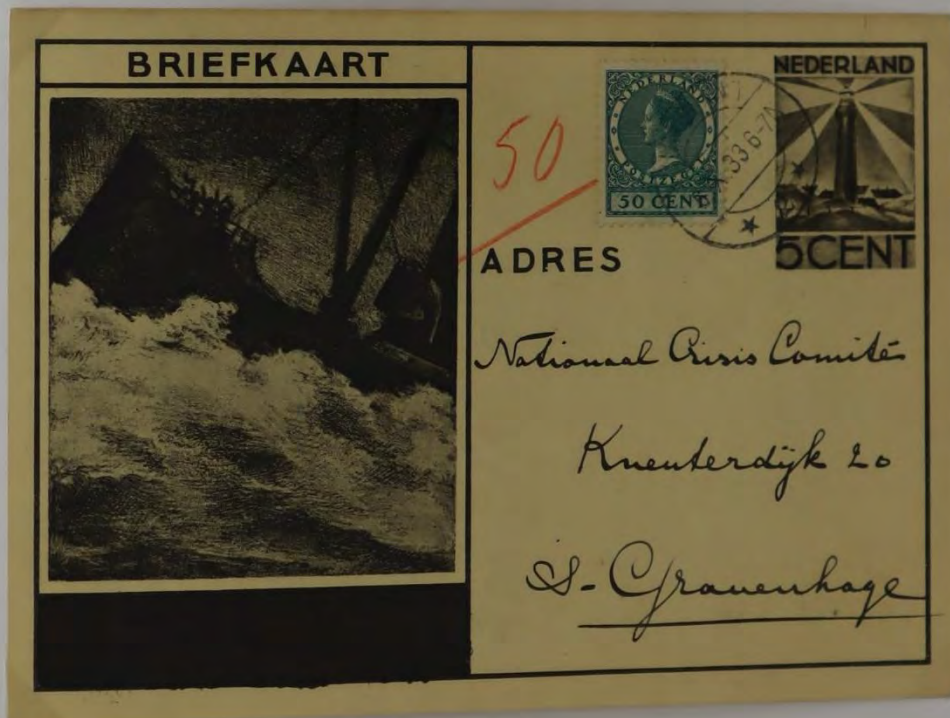 BRIEFKAART
50
NEDERLAND
50 CENT
33.6-7
NEDERLAND
5 CENT
ADRES
Nationaal Crisis Comité
Kneuterdijk 20
S-Gravenhage